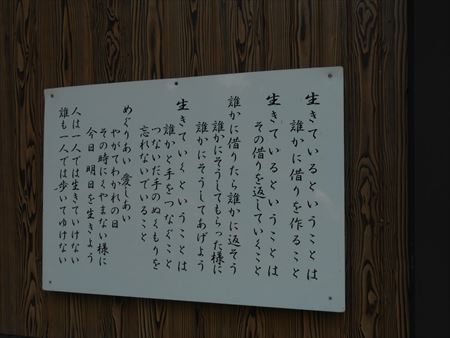 生きているということは
誰かに借りを作ること
生きていくということは
その借りを返していくこと
誰かに借りたら誰かに返そう
誰かにそうしてもらった様に
誰かにそうしてあげよう
生きていくということは
誰かと手をつなぐこと
つないだ手のぬくもりを
忘れないでいること
めぐりあい愛しあい
やがてわかれの日
その時にくやまない様に
今日明日を生きよう
人は一人では生きていけない
誰も一人では歩いてゆけない